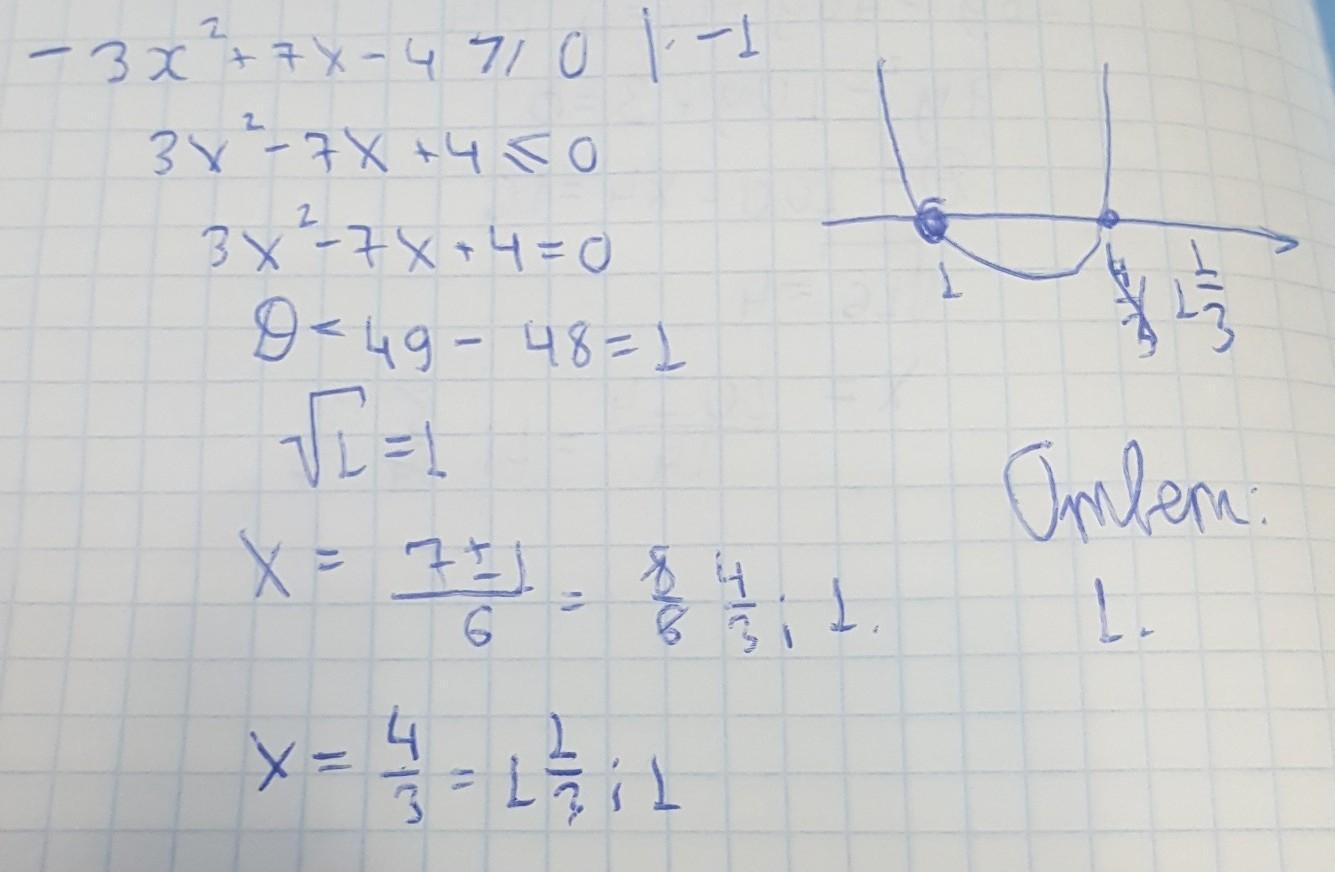 -3x² + 7x - 4 ⩾ 0 | · -1
3x² - 7x + 4 ⩽ 0
3x² - 7x + 4 = 0
D = 49 - 48 = 1
√1 = 1
x = (7 ± 1)/6 = 8/6 4/3 ; 1.
x = 4/3 = 1 1/3 ; 1
1 4/3 1 1/3
Ответ:
1.